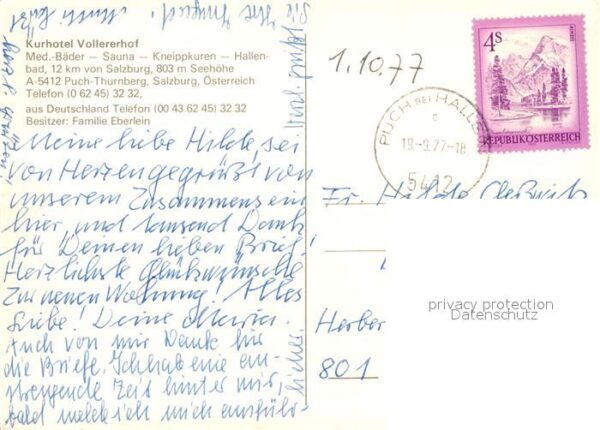 Kurhotel Vollererhof
Med.-Bäder — Sauna — Kneippkuren — Hallen-
bad, 12 km von Salzburg, 803 m Seehöhe
A-5412 Puch-Thurnberg, Salzburg, Österreich
Telefon (0 62 45) 32 32,
aus Deutschland Telefon (00 43 62 45) 32 32
Besitzer: Familie Eberlein
Meine liebe Hilde, sei
von Herzen gegrüßt von
unserem Zusammensein
hier, und tausend Dank
für Deinen lieben Brief!
Herzlichste Glückwünsche
zur neuen Wohnung! Alles
Liebe! Deine Maria.
Auch von mir Dank für
die Briefe. Ich habe eine an-
strengende Zeit hinter mir,
bald melde ich mich ausführ-
licher.
1.10.77
4S
REPUBLIK ÖSTERREICH
PUCH BEI HALLEIN
c
19.-9.77-18
5412
Fr. Hilde
Herber
801
privacy protection
Datenschutz